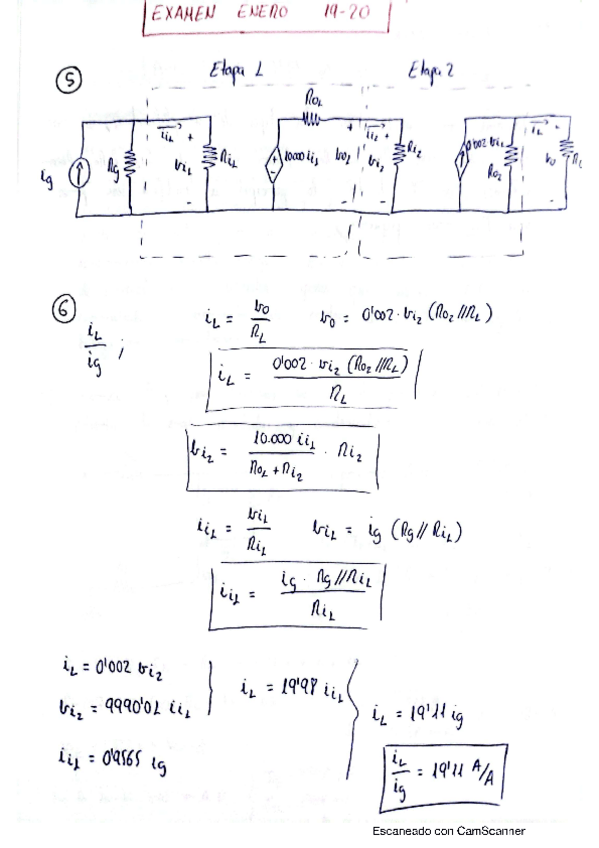 EXAMEN ENERO 19-20
⑤ Etapa 1 Etapa 2
ig Rg ii1 + vi1 - Ri1 Ro1 + - 10000 ii1 + vo1 - ii2 + vi2 - Ri2 0'002 vi2 Ro2 iL + vo - RL
⑥ iL/ig ; iL = vo/RL vo = 0'002 · vi2 (Ro2//RL)
iL = 0'002 · vi2 (Ro2//RL) / RL
vi2 = 10.000 ii1 / (Ro1 + Ri2) · Ri2
ii1 = vi1/Ri1 vi1 = ig (Rg//Ri1)
ii1 = ig · Rg//Ri1 / Ri1
iL = 0'002 vi2
vi2 = 9990'01 ii1
ii1 = 0'9565 ig
iL = 19'98 ii1
iL = 19'11 ig
iL/ig = 19'11 A/A
Escaneado con CamScanner